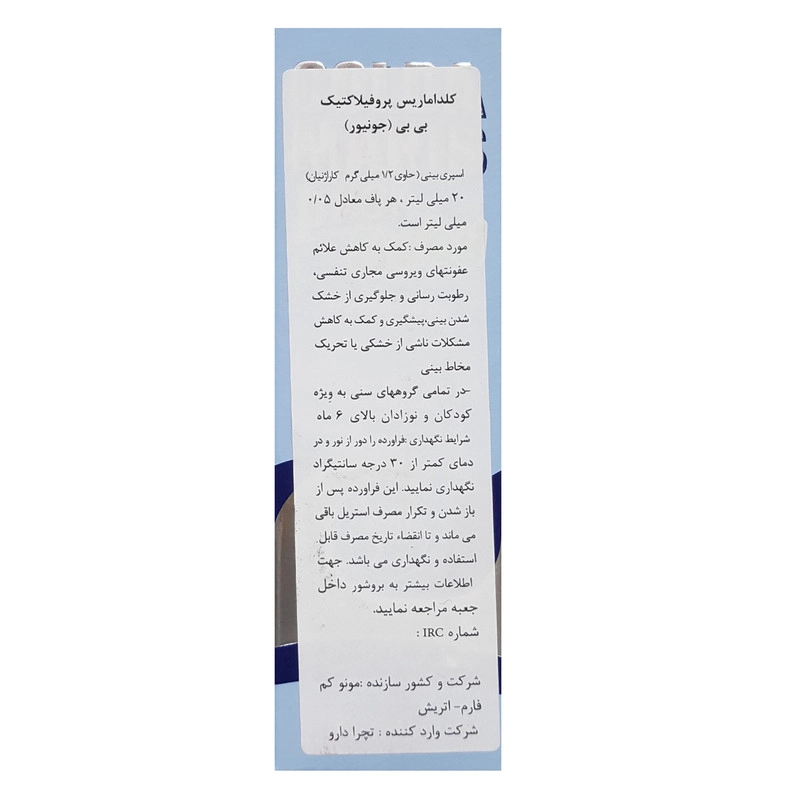 کلداماریس پروفیلاکتیک
بی بی (جونیور)
اسپری بینی (حاوی ۱/۲ میلی گرم کاراژنیان)
۲۰ میلی لیتر ، هر پاف معادل ۰/۰۵
میلی لیتر است.
مورد مصرف :کمک به کاهش علائم
عفونتهای ویروسی مجاری تنفسی،
رطوبت رسانی و جلوگیری از خشک
شدن بینی،پیشگیری و کمک به کاهش
مشکلات ناشی از خشکی یا تحریک
مخاط بینی
-در تمامی گروههای سنی به ویژه
کودکان و نوزادان بالای ۶ ماه
شرایط نگهداری :فراورده را دور از نور و در
دمای کمتر از ۳۰ درجه سانتیگراد
نگهداری نمایید. این فراورده پس از
باز شدن و تکرار مصرف استریل باقی
می ماند و تا انقضاء تاریخ مصرف قابل
استفاده و نگهداری می باشد. جهت
اطلاعات بیشتر به بروشور داخل
جعبه مراجعه نمایید.
شماره IRC :
شرکت و کشور سازنده :مونو کم
فارم- اتریش
شرکت وارد کننده : تچرا دارو